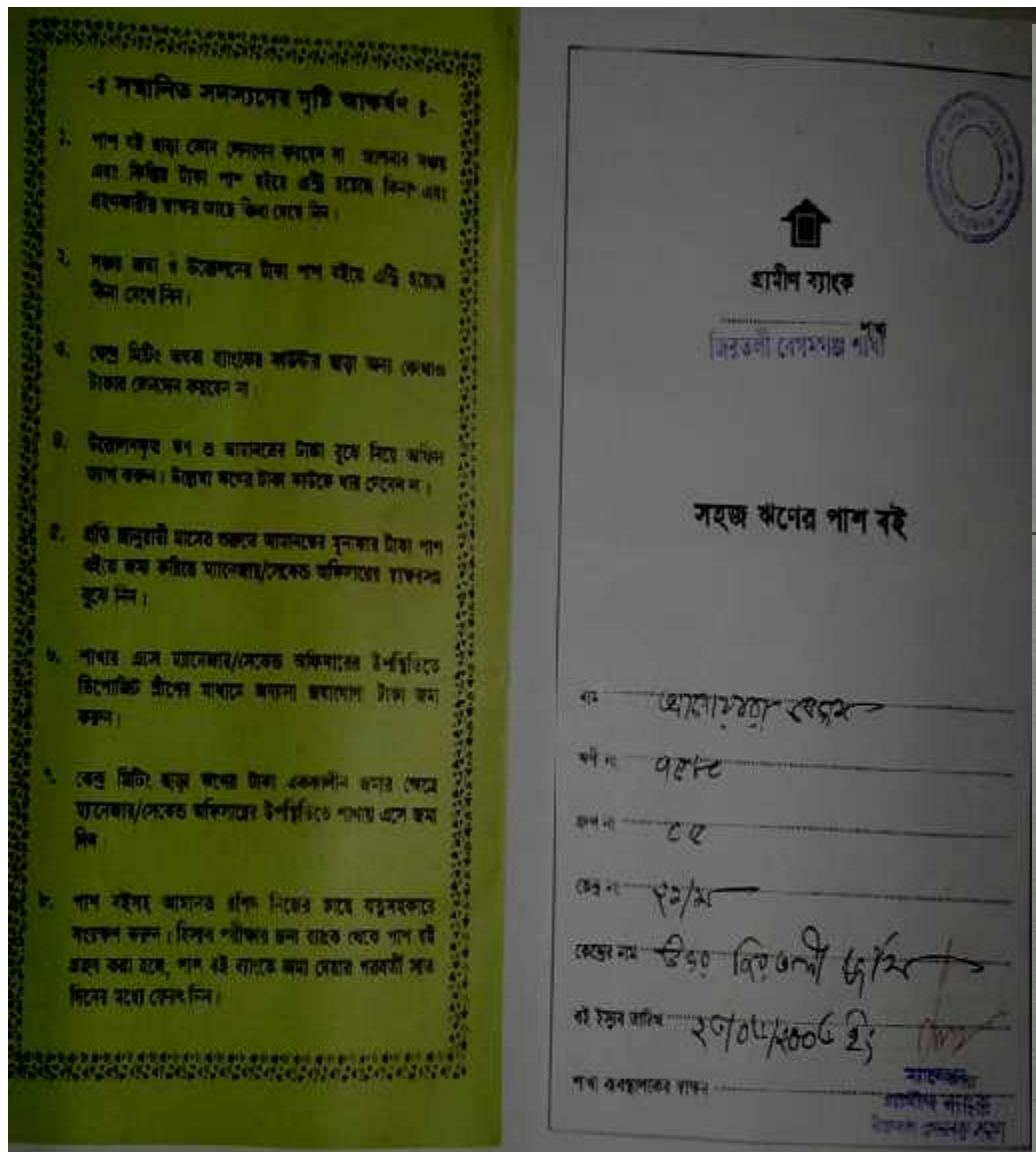 -ঃ সম্মানিত সদস্যদের দৃষ্টি আকর্ষণ ঃ-
১. পাশ বই ছাড়া কোন লেনদেন করবেন না। আপনার সঞ্চয়
এবং কিস্তির টাকা পাশ বইয়ে এন্ট্রি হয়েছে কিনা এবং
গ্রহণকারীর স্বাক্ষর আছে কিনা দেখে নিন।
২. সঞ্চয় জমা ও উত্তোলনের টাকা পাশ বইয়ে এন্ট্রি হয়েছে
কিনা দেখে নিন।
৩. কেন্দ্র মিটিং অথবা ব্যাংকের কাউন্টার ছাড়া অন্য কোথাও
টাকার লেনদেন করবেন না।
৪. উত্তোলনকৃত ঋণ ও আমানতের টাকা বুঝে নিয়ে অফিস
ত্যাগ করুন। উল্লেখ্য ঋণের টাকা কাউকে ধার দেবেন না।
৫. প্রতি জানুয়ারী মাসের শুরুতে আমানতের মুনাফার টাকা পাশ
বইতে জমা করিয়ে ম্যানেজার/সেকেন্ড অফিসারের স্বাক্ষরসহ
বুঝে নিন।
৬. শাখায় এসে ম্যানেজার/সেকেন্ড অফিসারের উপস্থিতিতে
ডিপোজিট স্লীপের মাধ্যমে অন্যান্য জমাযোগ্য টাকা জমা
করুন।
৭. কেন্দ্র মিটিং ছাড়া ঋণের টাকা এককালীন জমার ক্ষেত্রে
ম্যানেজার/সেকেন্ড অফিসারের উপস্থিতিতে শাখায় এসে জমা
দিন।
৮. পাশ বইসহ আমানত রশিদ নিজের কাছে যত্নসহকারে
সংরক্ষণ করুন। হিসাব পরীক্ষার জন্য ব্যাংক থেকে পাশ বই
গ্রহন করা হলে, পাশ বই ব্যাংকে জমা দেয়ার পরবর্তী সাত
দিনের মধ্যে ফেরৎ নিন।
গ্রামীণ ব্যাংক
শাখা
জিরতলী বেগমগঞ্জ শাখা
সহজ ঋণের পাশ বই
নাম বেগম
ঋণী নং
গ্রুপ নং
কেন্দ্র নং
কেন্দ্রের নাম উত্তর জিরতলী
বই ইস্যুর তারিখ
শাখা ব্যবস্থাপকের স্বাক্ষর
ম্যানেজার
গ্রামীণ ব্যাংক